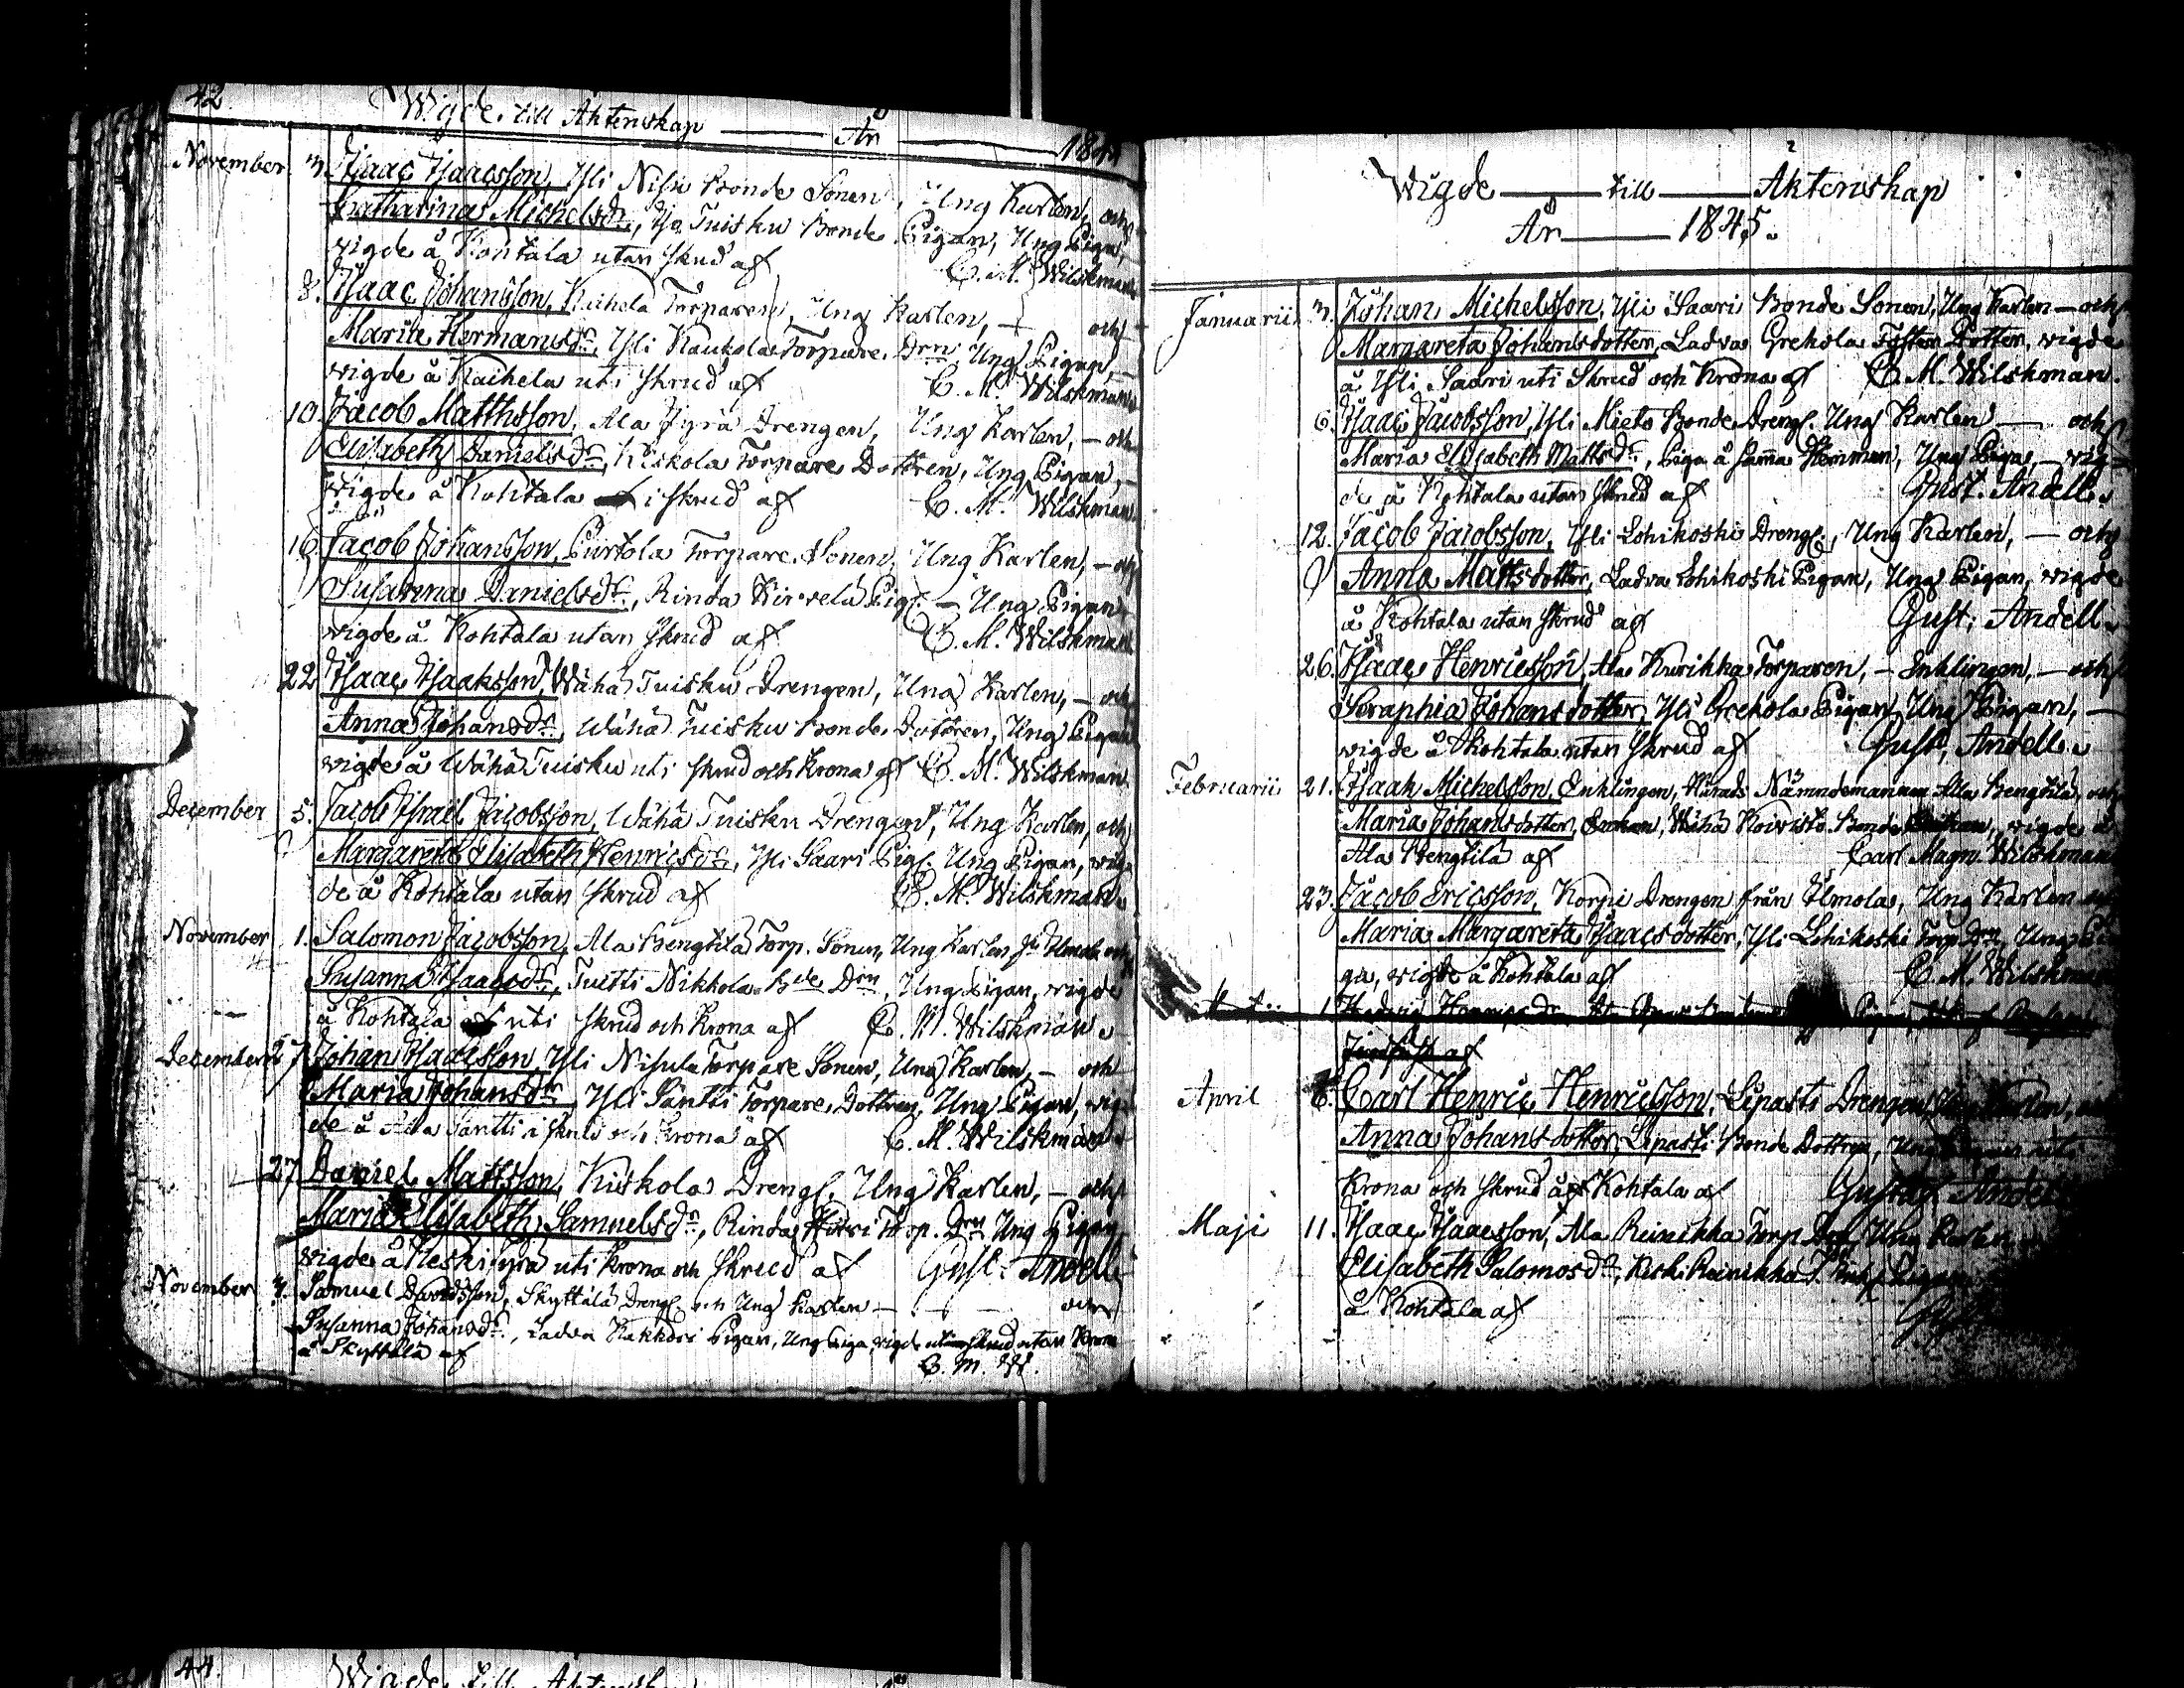 42
Wigde till Äktenskap — År 1844
November 3. Isaac Isaacsson, Yli Nisu Bonde Sonen, Ung Karlen, och
Catharina Michelsdr, Iso Tuisku Bonde Pigan, Ung Piga,
wigde å Kohtala utan skrud af C. M. Wilskman
8. Isaac Johansson, Kaihela Torparen, Ung Karlen, — och
Maria Hermansdr, Yli Kaukola Torpare Drn, Ung Pigan, —
wigde å Kaihela uti skrud af C. M. Wilskman
10. Jacob Mattsson, Ala Jyrä Drengen, Ung Karlen, — och
Elisabeth Danielsdr, Kiskola Torpare Dottren, Ung Pigan, —
wigde å Kohtala i skrud af C. M. Wilskman
16. Jacob Johansson, Purtola Torpare Sonen, Ung Karlen, — och
Susanna Danielsdr, Rinda Kirvelä Pig. — Ung Pigan,
wigde å Kohtala utan skrud af C. M. Wilskman
22 Isaac Isaaksson, Wähä Tuisku Drengen, Ung Karlen, — och
Anna Johansdr, Wähä Tuisku Bonde Dottren, Ung Pigan
wigde å Wähä Tuisku uti skrud och Krona af C. M. Wilskman
December 5. Jacob Israel Jacobsson, Wähä Tuisku Drengen, Ung Karlen, och
Margareta Elisabeth Henricsdr, Yli Saari Pig. Ung Pigan, wig-
de å Kohtala utan skrud af C. M. Wilskman
November 1. Salomon Jacobsson, Ala Bengtilä Torp. Sonen, Ung Karlen
Susanna Isaacsdr, Tuitti Nikkola Bde Drn, Ung Pigan, wigde
å Kohtala uti skrud och Krona af C. M. Wilskman
December 27 Johan Isacsson, Yli Nisula Torpare Sonen, Ung Karlen, — och
Maria Johansdr, Yli Säntti Torpare Dottren, Ung Pigan, wig-
de å Ala Säntti i skrud och Krona af C. M. Wilskman
27 Daniel Mattsson, Kiskola Dreng. Ung Karlen, — och
Maria Elisabeth Samuelsdr, Rinda Torp. Drn Ung Pigan,
wigde å Keski Jyrä uti krona och skrud af Gust. Andell
November 3. Samuel Davidsson, Skyttälä Dreng. och Ung Karlen — och
Susanna Johansdr, Ladva Kakkori Pigan, Ung Piga, wigde uti skrud utan Krona
å Skyttälä af C. M. W.
Wigde — till — Äktenskap
År — 1845.
Januarii 3. Johan Michelsson, Yli Saari Bonde Sonen, Ung Karlen — och
Margareta Johansdotter, Ladva Grekola Dotter, wigde
å Yli Saari uti Skrud och Krona af C. M. Wilskman.
6. Isaac Jacobsson, Yli Mieto Bonde Dreng. Ung Karlen — och
Maria Elisabeth Mattsdr, Piga å samma Hemman, Ung Piga, — wig-
de å Kohtala utan skrud af Gust. Andell.
12. Jacob Jacobsson, Yli Lohikoski Dreng., Ung Karlen, — och
Anna Mattsdotter, Ladva Lohikoski Pigan, Ung Pigan, wigde
å Kohtala utan skrud af Gust. Andell.
26. Isaac Henricsson, Ala Kurikka Torparen, — Enklingen, — och
Seraphia Johansdotter, Yli Grekola Pigan, Ung Pigan, —
wigde å Kohtala utan skrud af Gust. Andell.
Februarii 21. Isaak Michelsson, Enklingen, Härads Nämndemannen Ala Bengtilä, och
Maria Johansdotter, Wähä Koivisto Bonde, wigde å
Ala Bengtilä af Carl Magn. Wilskman
23. Jacob Ericsson, Korpi Drengen från Ilmola, Ung Karlen
Maria Margareta Isaacsdotter, Yli Lohikoski Torp. Drn, Ung Pi-
ga, wigde å Kohtala af C. M. Wilskman
1
af
April Carl Henric Henricsson, Lipasti Drengen
Anna Johansdotter, Lipasti Bonde Dottren,
Krona och skrud å Kohtala af Gustaf Andell
Maji 11. Isaac Isaacsson, Ala Reinikka Torp Ung Karlen
Elisabeth Salomosdr, Keski Reinikka
å Kohtala af
44.
Wigde till Äktenskap